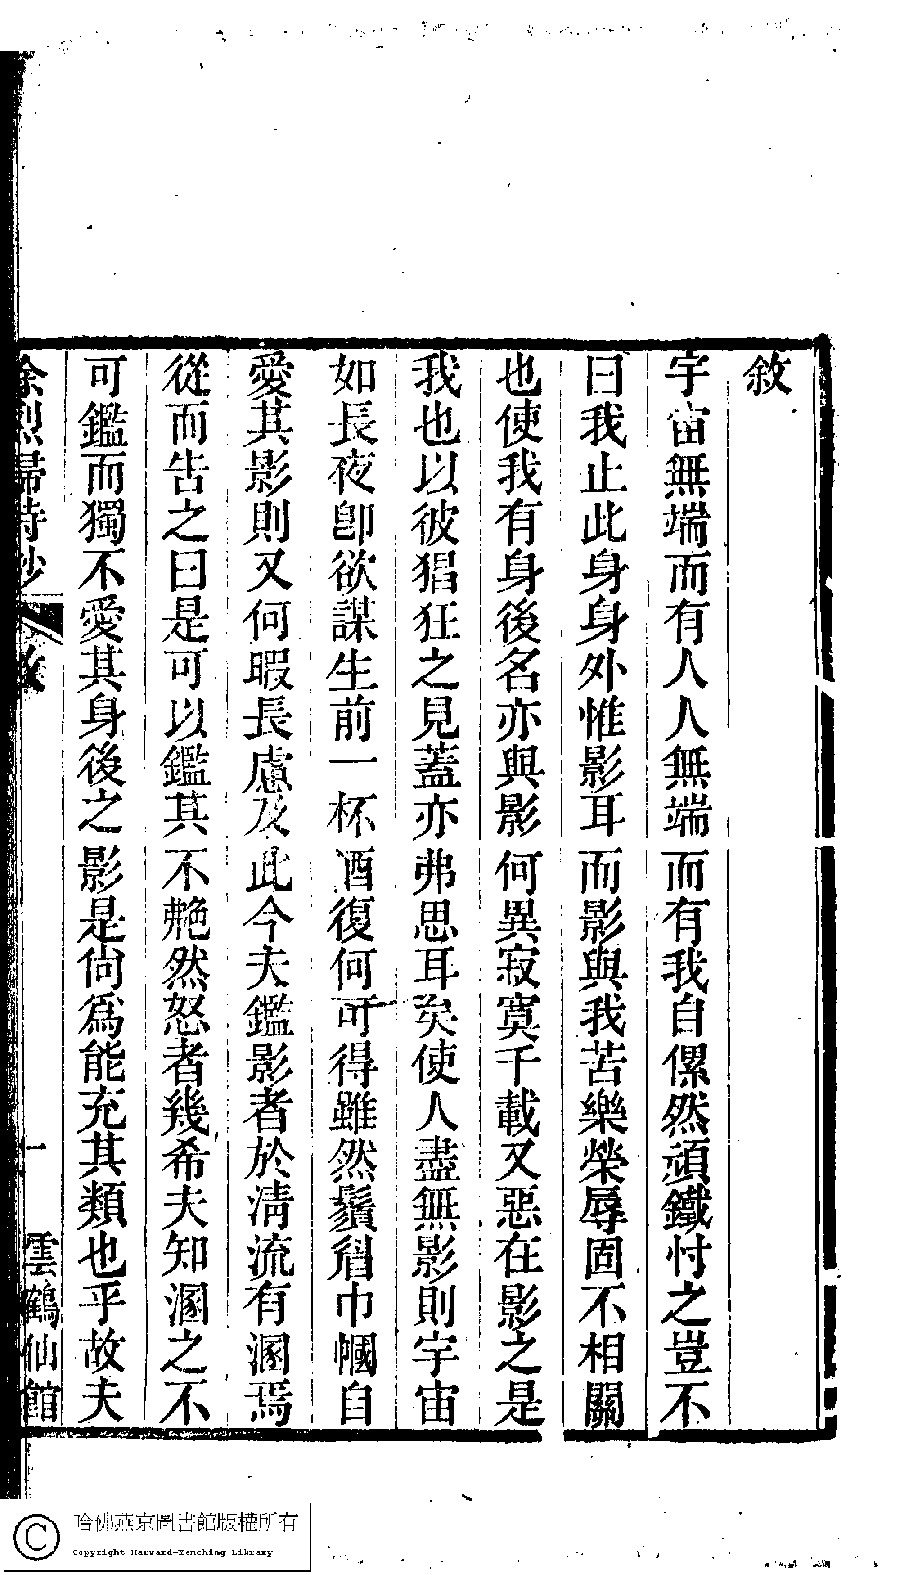 敘
宇宙無端而有人人無端而有我自傫然頑鐵忖之豈不
曰我止此身身外惟影耳而影與我苦樂榮辱固不相關
也使我有身後名亦與影何異寂寞千載又惡在影之是
我也以彼猖狂之見蓋亦弗思耳矣使人盡無影則宇宙
如長夜卽欲謀生前一杯酒復何可得雖然鬚眉巾幗自
愛其影則又何暇長慮及此今夫鑑影者於淸流有溷焉
從而告之曰是可以鑑其不艴然怒者幾希夫知溷之不
可鑑而獨不愛其身後之影是尙爲能充其類也乎故夫
徐烈婦詩鈔 敘 一 雲鶴仙館
哈佛燕京圖書館版權所有
Copyright Harvard-Yenching Library